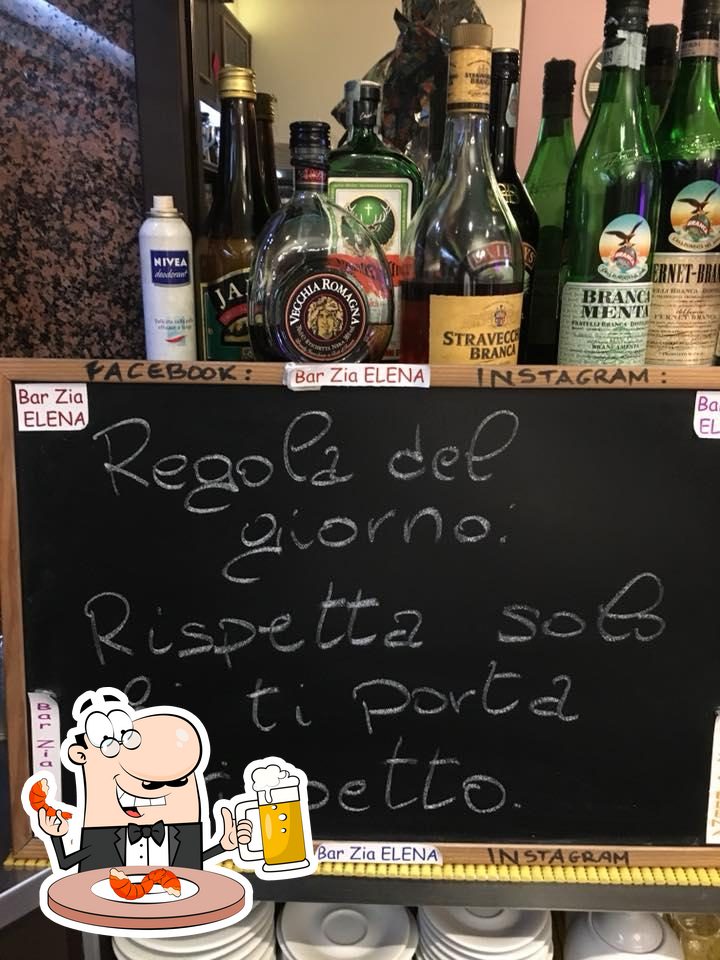 NIVEA
deodorant
JA
VECCHIA ROMAGNA
STRAVECCH
BRANCA
BRANCA
MENTA
FRATELLI BRANCA
ERNET-BRAN
FACEBOOK:
Bar Zia ELENA
INSTAGRAM:
Bar Zia
ELENA
Ba
EL
Regola del
giorno:
Rispetta solo
ti porta
petto.
Bar Zia
Bar Zia ELENA
INSTAGRAM